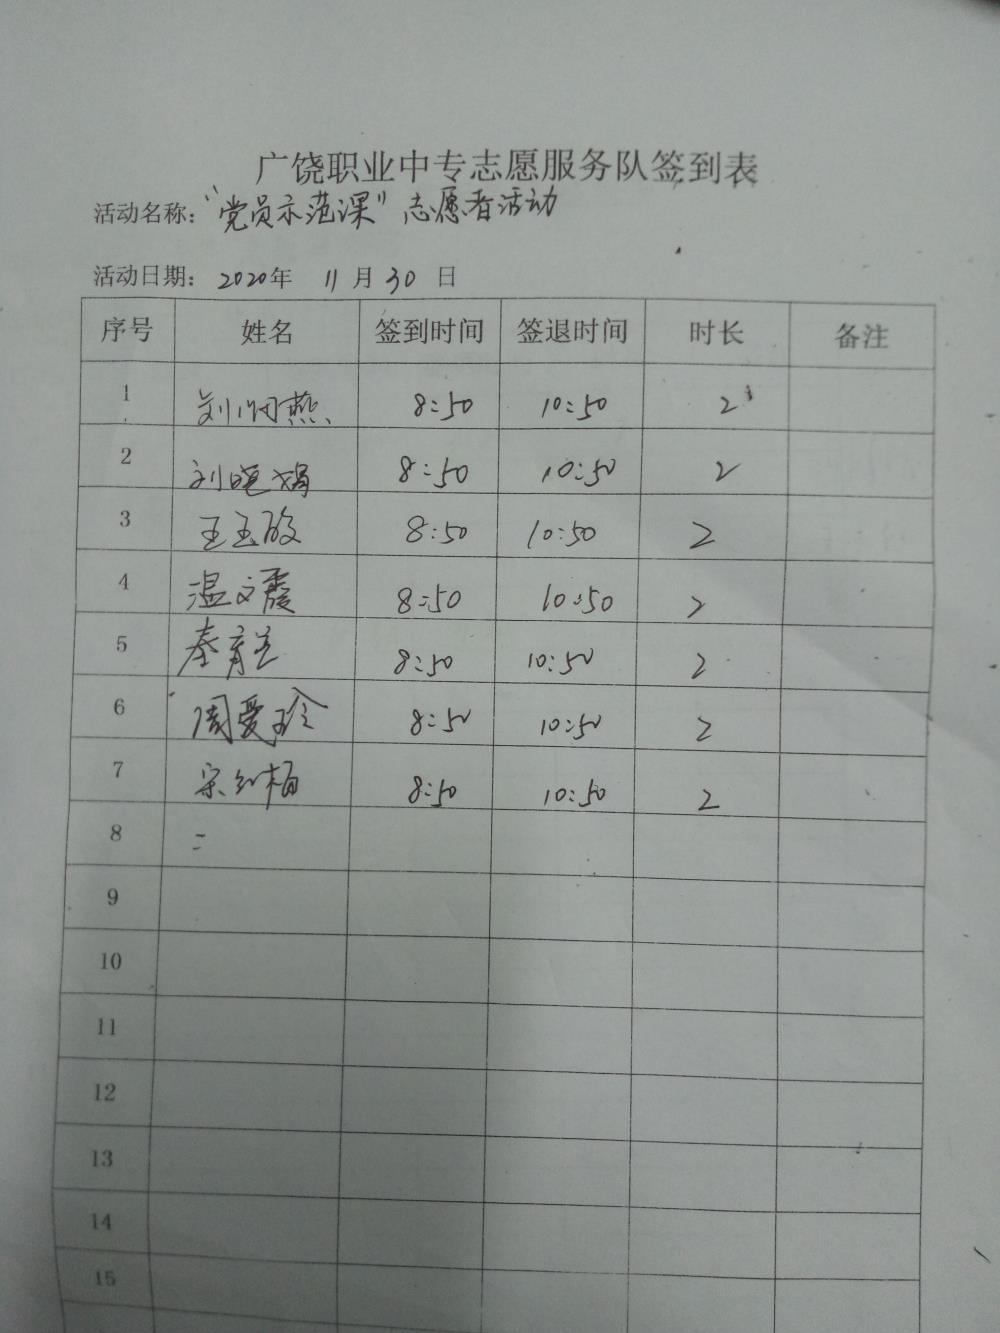 广饶职业中专志愿服务队签到表
活动名称：“党员示范课”志愿者活动
活动日期： 2020年 11月30日
序号 姓名 签到时间 签退时间 时长 备注
1 刘 燕 8:50 10:50 2
2 刘晓娟 8:50 10:50 2
3 王玉 8:50 10:50 2
4 温文霞 8:50 10:50 2
5 秦育兰 8:50 10:50 2
6 周爱玲 8:50 10:50 2
7 宋红梅 8:50 10:50 2
8
9
10
11
12
13
14
15